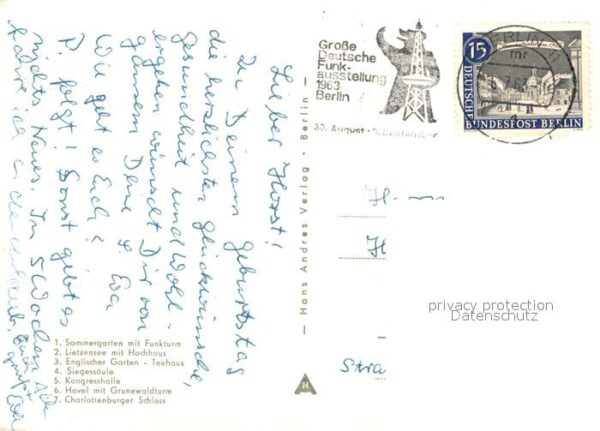 Lieber Horst!
Zu Deinem Geburtstag
die herzlichsten Glückwünsche,
Gesundheit und Wohl-
ergehen wünscht Dir von
ganzem Deine L. Eva
Wie geht es Euch?
P. folgt! Sonst gibt es
nichts Neues. In 5 Wochen
fahre ich in den Urlaub,
Eva
Große
Deutsche
Funk-
ausstellung
1963
Berlin
30. August - 8. September
BERLIN
15
DEUTSCHE
BUNDESPOST BERLIN
— Hans Andres Verlag · Berlin —
H
H
Stra
privacy protection
Datenschutz
1. Sommergarten mit Funkturm
2. Lietzensee mit Hochhaus
3. Englischer Garten - Teehaus
4. Siegessäule
5. Kongresshalle
6. Havel mit Grunewaldturm
7. Charlottenburger Schloss
H
A